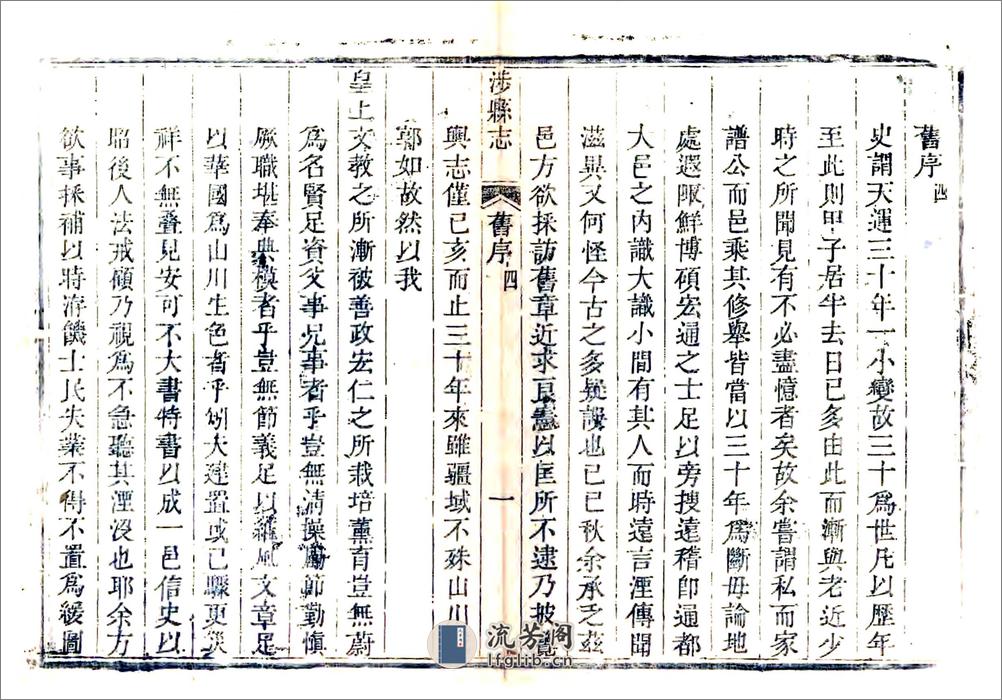 舊序四
史謂天運三十年一小變故三十爲世凡以歷年
至此則甲子居半去日已多由此而漸與老近少
時之所聞見有不必盡憶者矣故余嘗謂私而家
譜公而邑乘其修舉皆當以三十年爲斷毋論地
處遐陬鮮博碩宏通之士足以旁搜遠稽卽通都
大邑之內識大識小間有其人而時遠言湮傳聞
滋異又何怪今古之多疑謏也已巳秋余承乏茲
邑方欲採訪舊章近求良憲以匡所不逮乃披覽
輿志僅己亥而止三十年來雖疆域不殊山川
鄣如故然以我
涉縣志
舊序四
一
皇上文教之所漸被善政宏仁之所栽培薰育豈無蔚
爲名賢足資父事兄事者乎豈無清操勵節勤愼
厥職堪奉典模者乎豈無節義足以維風文章足
以華國爲山川生色者乎矧大建置或已驟更災
祥不無疊見安可不大書特書以成一邑信史以
昭後人法戒顧乃視爲不急聽其湮沒也耶余方
欲事採補以時洊饑士民失業不得不置爲緩圖
流芳閣
lfglib.cn